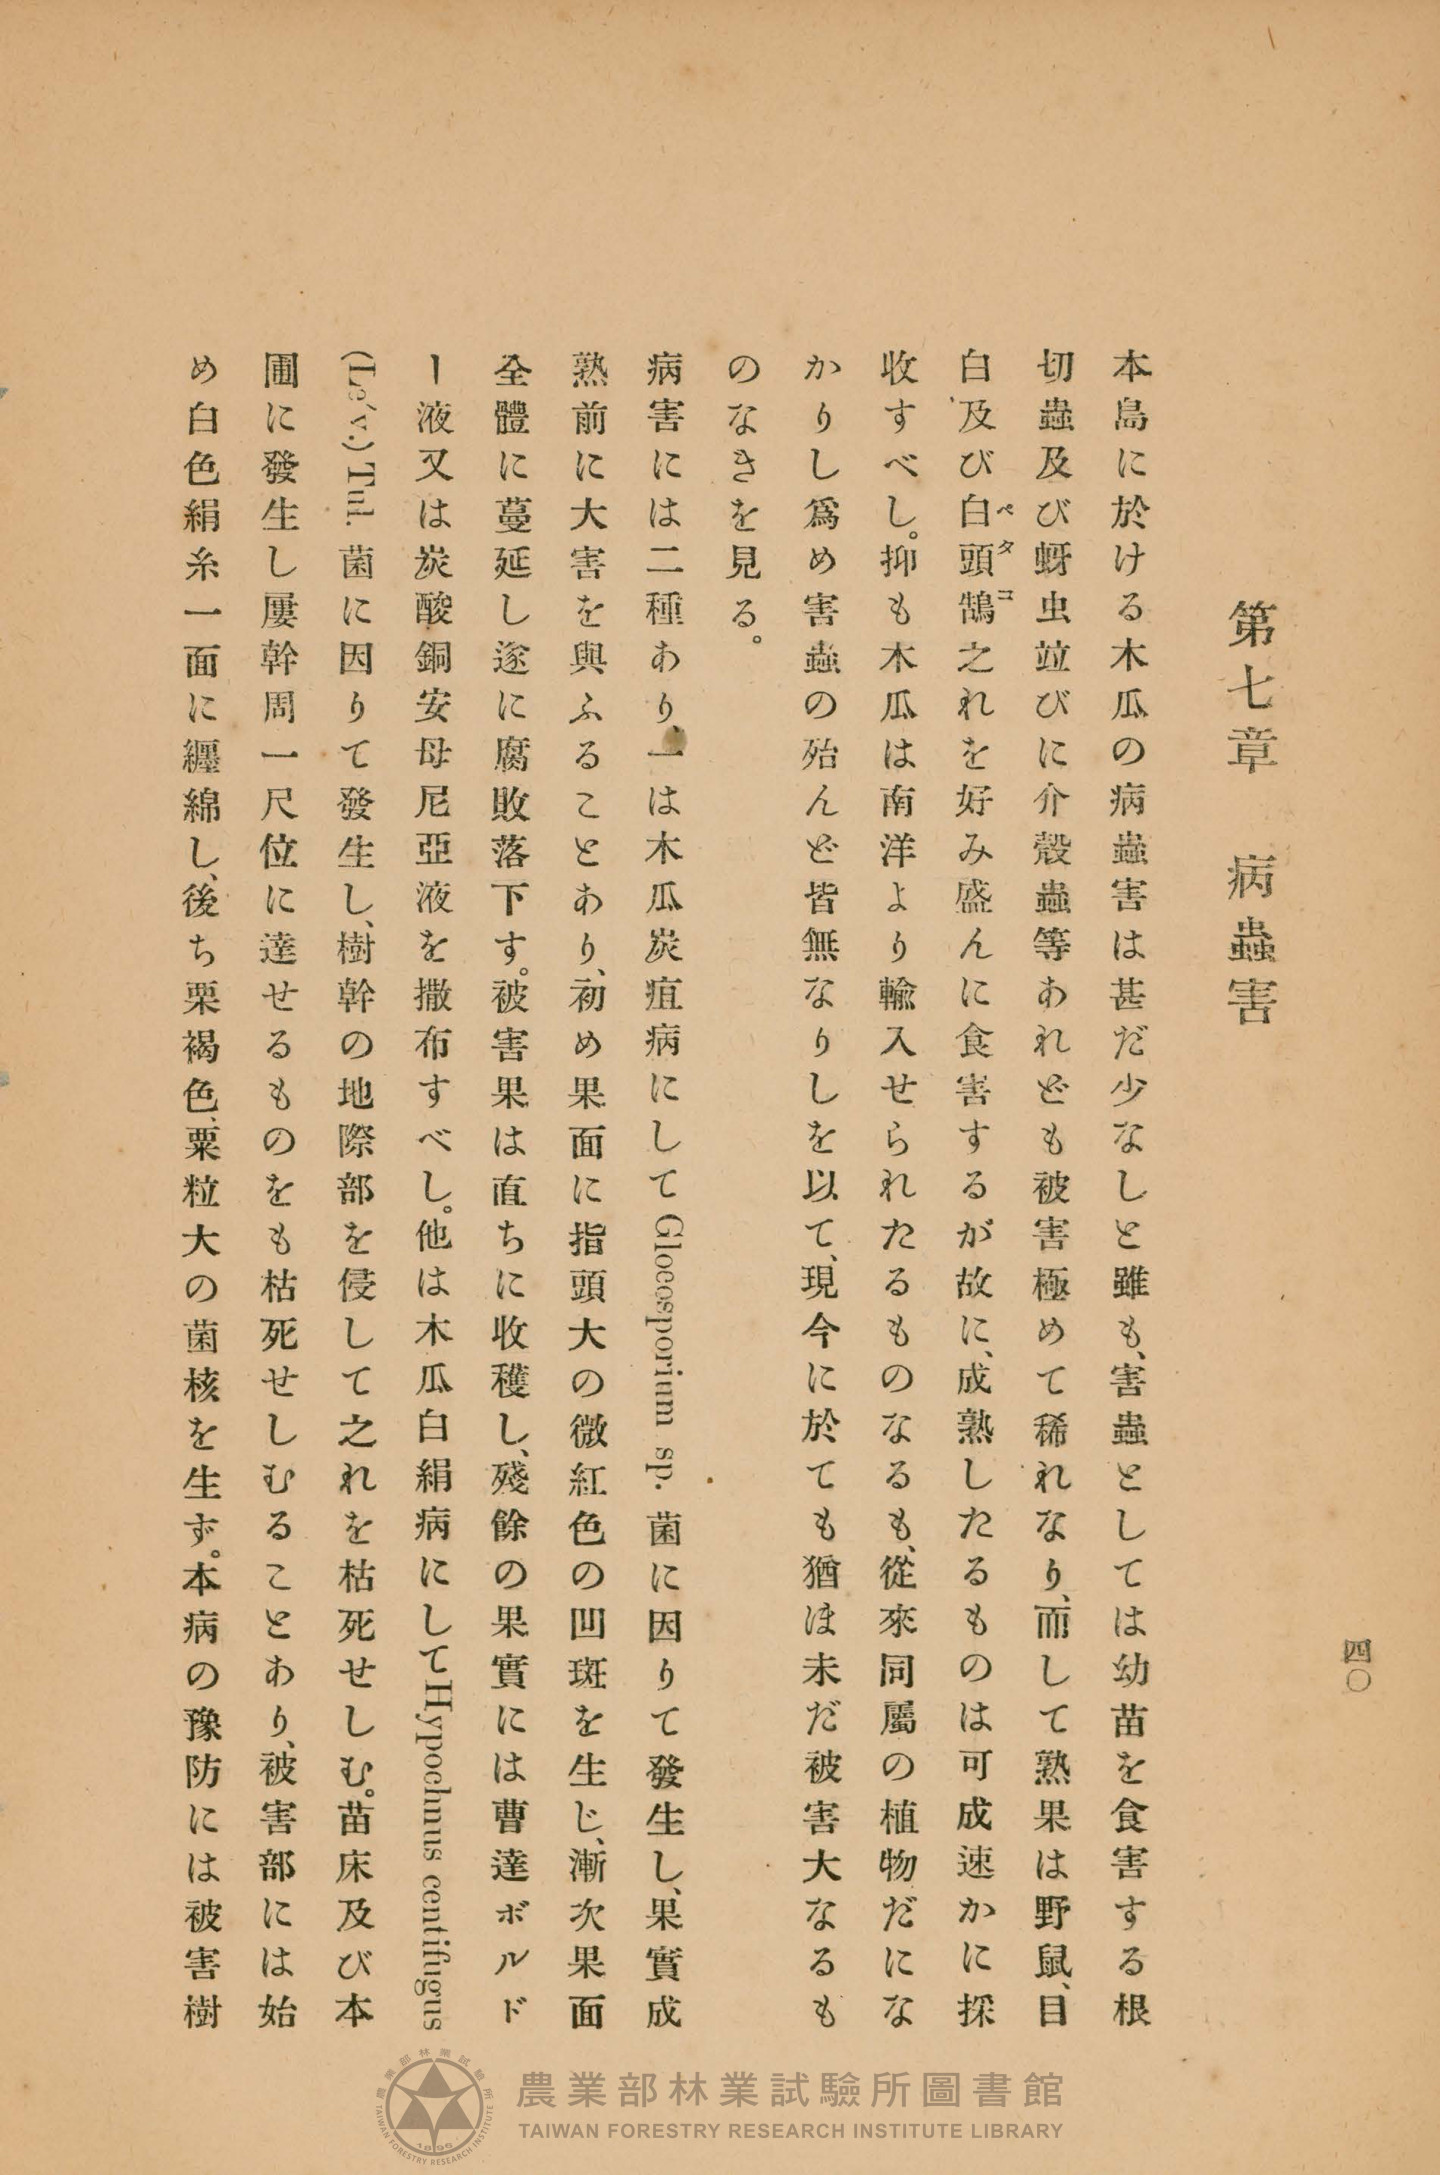 四〇
第七章 病蟲害
本島に於ける木瓜の病蟲害は甚だ少なしと雖も、害蟲としては幼苗を食害する根
切蟲及び蚜虫竝びに介殼蟲等あれども被害極めて稀れなり、而して熟果は野鼠、目
白及び白頭鵠之れを好み盛んに食害するが故に、成熟したるものは可成速かに採
ペタコ
收すべし。抑も木瓜は南洋より輸入せられたるものなるも、從來同屬の植物だにな
かりし爲め害蟲の殆んど皆無なりしを以て、現今に於ても猶ほ未だ被害大なるも
のなきを見る。
病害には二種あり、一は木瓜炭疽病にして Gloeosporium sp. 菌に因りて發生し、果實成
熟前に大害を與ふることあり、初め果面に指頭大の微紅色の凹斑を生じ、漸次果面
全體に蔓延し遂に腐敗落下す。被害果は直ちに收穫し、殘餘の果實には曹達ボルド
ー液又は炭酸銅安母尼亞液を撒布すべし。他は木瓜白絹病にして Hypochnus centifugus
(Le´v.) Tul. 菌に因りて發生し、樹幹の地際部を侵して之れを枯死せしむ。苗床及び本
圃に發生し屢幹周一尺位に達せるものをも枯死せしむることあり、被害部には始
め白色絹糸一面に纏綿し、後ち栗褐色、粟粒大の菌核を生ず。本病の豫防には被害樹
農業部林業試驗所圖書館
TAIWAN FORESTRY RESEARCH INSTITUTE LIBRARY
農業部林業試驗所
TAIWAN FORESTRY RESEARCH INSTITUTE
1896